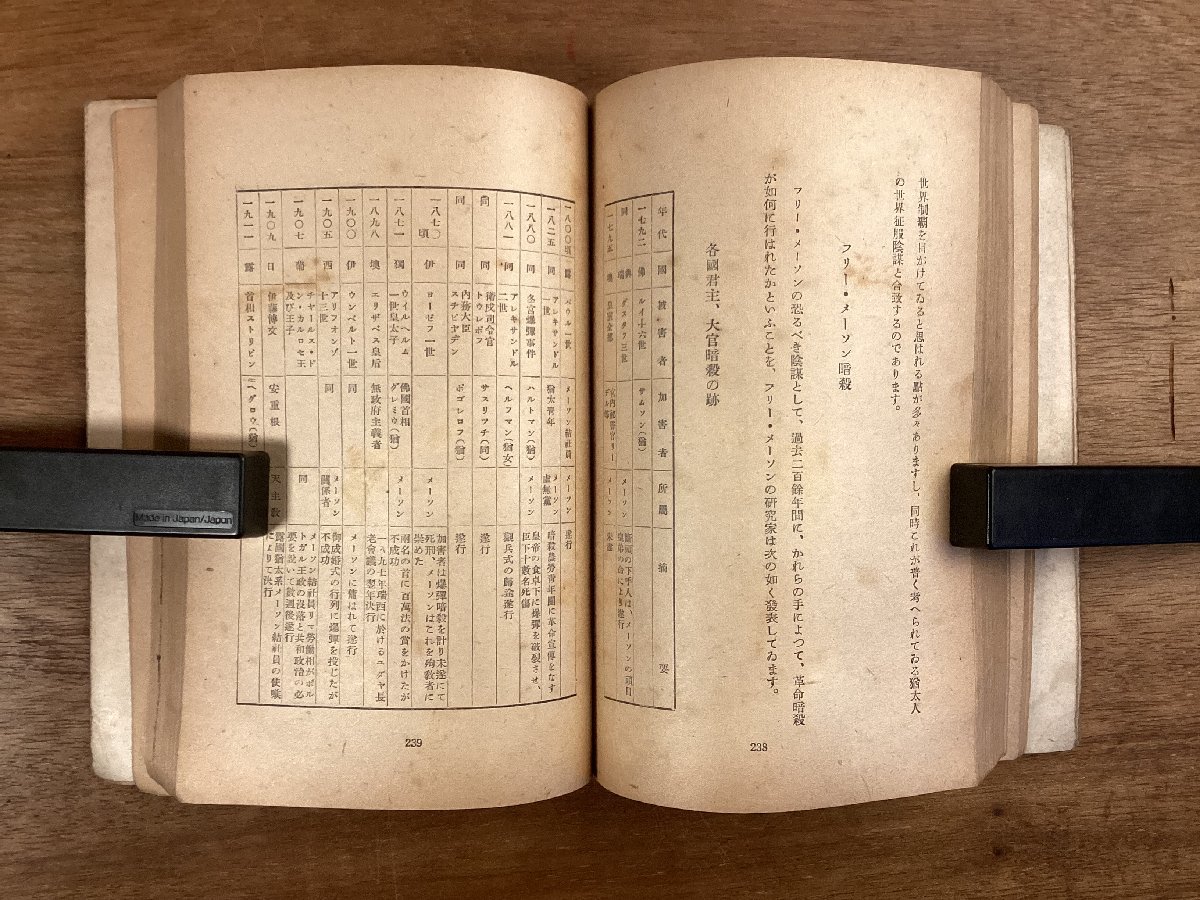 世界制覇を目がけてゐると思はれる點が多々ありますし、同時これが普く考へられてゐる猶太人
の世界征服陰謀と合致するのであります。
フリー・メーソン暗殺
フリー・メーソンの恐るべき陰謀として、過去二百餘年間に、かれらの手によつて、革命暗殺
が如何に行はれたかといふことを、フリー・メーソンの研究家は次の如く發表してゐます。
各國君主、大官暗殺の跡
年代 國 被害者 加害者 所屬 摘要
一七九二 佛 ルイ十六世 サムソン(猶) メーソン 斷頭の下手人は、メーソンの
同 瑞典 グスタフ三世 メーソン 皇弟の命により遂行
一七九五 皇室全部 メーソン 未遂
238
一八〇〇頃 露 パウル一世 メーソン結社員 メーソン 遂行
一八二五 同 アレキサンドル一世 猶太青年 メーソン虛無黨 暗殺農勞青年間に革命宣傳をなす
一八八〇 同 冬宮爆彈事件 ハルトマン(猶) メーソン 皇帝の食卓下に爆彈を破裂させ、臣下十數名死傷
一八八一 同 アレキサンドル二世 ヘルフマン(猶女) 觀兵式の歸途遂行
同 同 衛戍司令官トウレポフ サスリツチ(同) 遂行
同 同 內務大臣スチピヤデン ポゴレロフ(猶) 遂行
一八七〇頃 伊 ヨーゼフ一世 メーソン 加害者は爆彈暗殺を計り未遂にて死刑、メーソンはこれを殉教者に崇めた
一八七一 獨 ウイルヘルム一世皇太子 佛國首相グレミウ(猶) メーソン 兩名の首に百萬法の賞をかけたが不成功
一八九八 墺 エリザベス皇后 無政府主義者 一八九七年瑞西に於けるユダヤ長老會議の翌年決行
一九〇〇 伊 ウンベルト一世 同 メーソンに傭はれて遂行
一九〇五 西 アリフオンゾ十三世 同 メーソン關係者 御成婚式の行列に爆彈を投じたが不成功
一九〇七 葡 チヤールス・ドン・カルロセ王及び王子 同 メーソン結社員リマ勞働相がポルトガル王政の沒落と共和政治の必要を說いて數週後遂行
一九〇九 日 伊藤博文 安重根 天主敎 露國猶太系メーソン結社員の使嗾によりて決行
一九一一 露 首相ストリピン ヘグロウ(猶)
239
Made in Japan/Japon